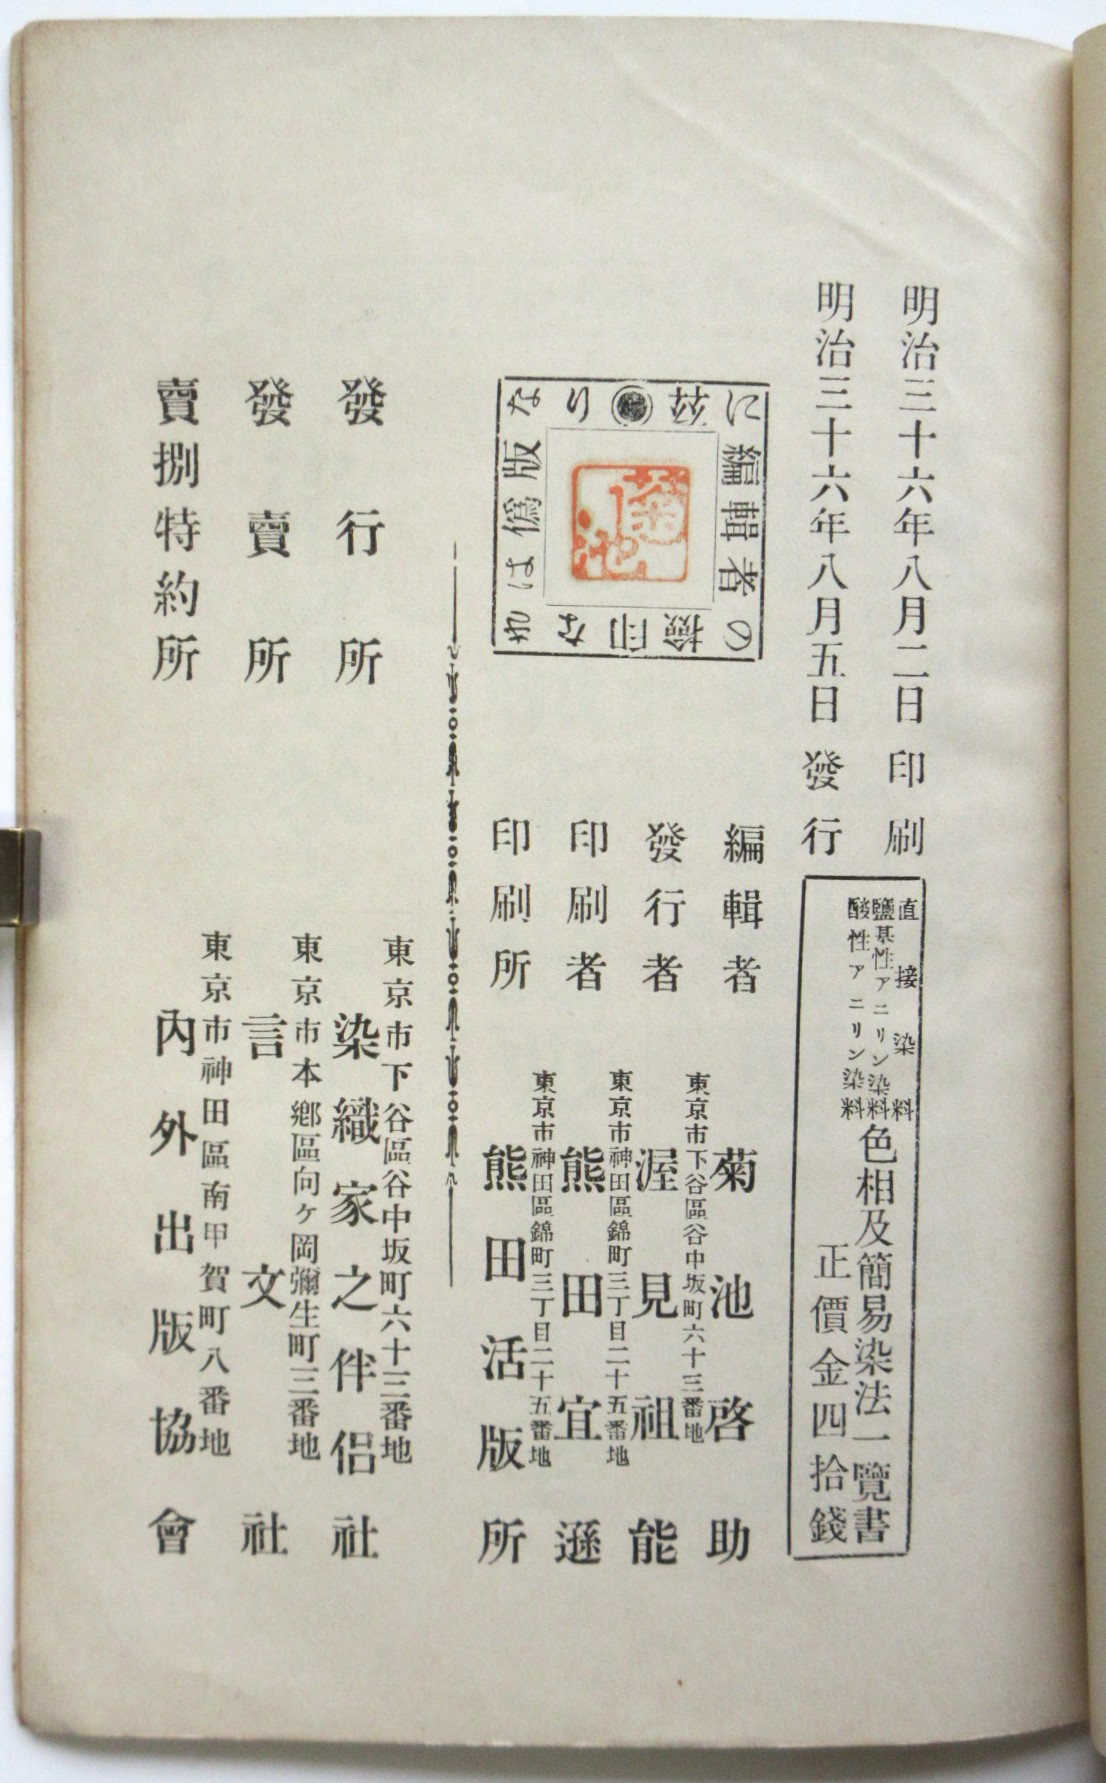 明治三十六年八月二日印刷
明治三十六年八月五日發行
直接染料
鹽基性アニリン染料
酸性アニリン染料
色相及簡易染法一覽書
正價金四拾錢
茲に編輯者の
檢印な
きは僞版
なり
菊池
編輯者
菊池啓助
東京市下谷區谷中坂町六十三番地
發行者
渥見祖能
東京市神田區錦町三丁目二十五番地
印刷者
熊田宜遜
東京市神田區錦町三丁目二十五番地
印刷所
熊田活版所
東京市下谷區谷中坂町六十三番地
發行所
染織家之伴侶社
東京市本鄕區向ヶ岡彌生町三番地
發賣所
言文社
東京市神田區南甲賀町八番地
賣捌特約所
內外出版協會